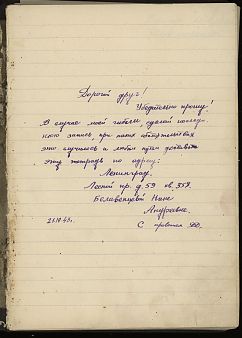 Дорогой друг!
Убедительно прошу!
В случае моей гибели сделай послед-
нюю запись, при каких обстоятельствах
это случилось и любым путем доставьте
эту тетрадь по адресу:
Ленинград.
Лесной пр. д. 59 кв. 357.
Белавенцевой Нине
Андреевне.
С приветом